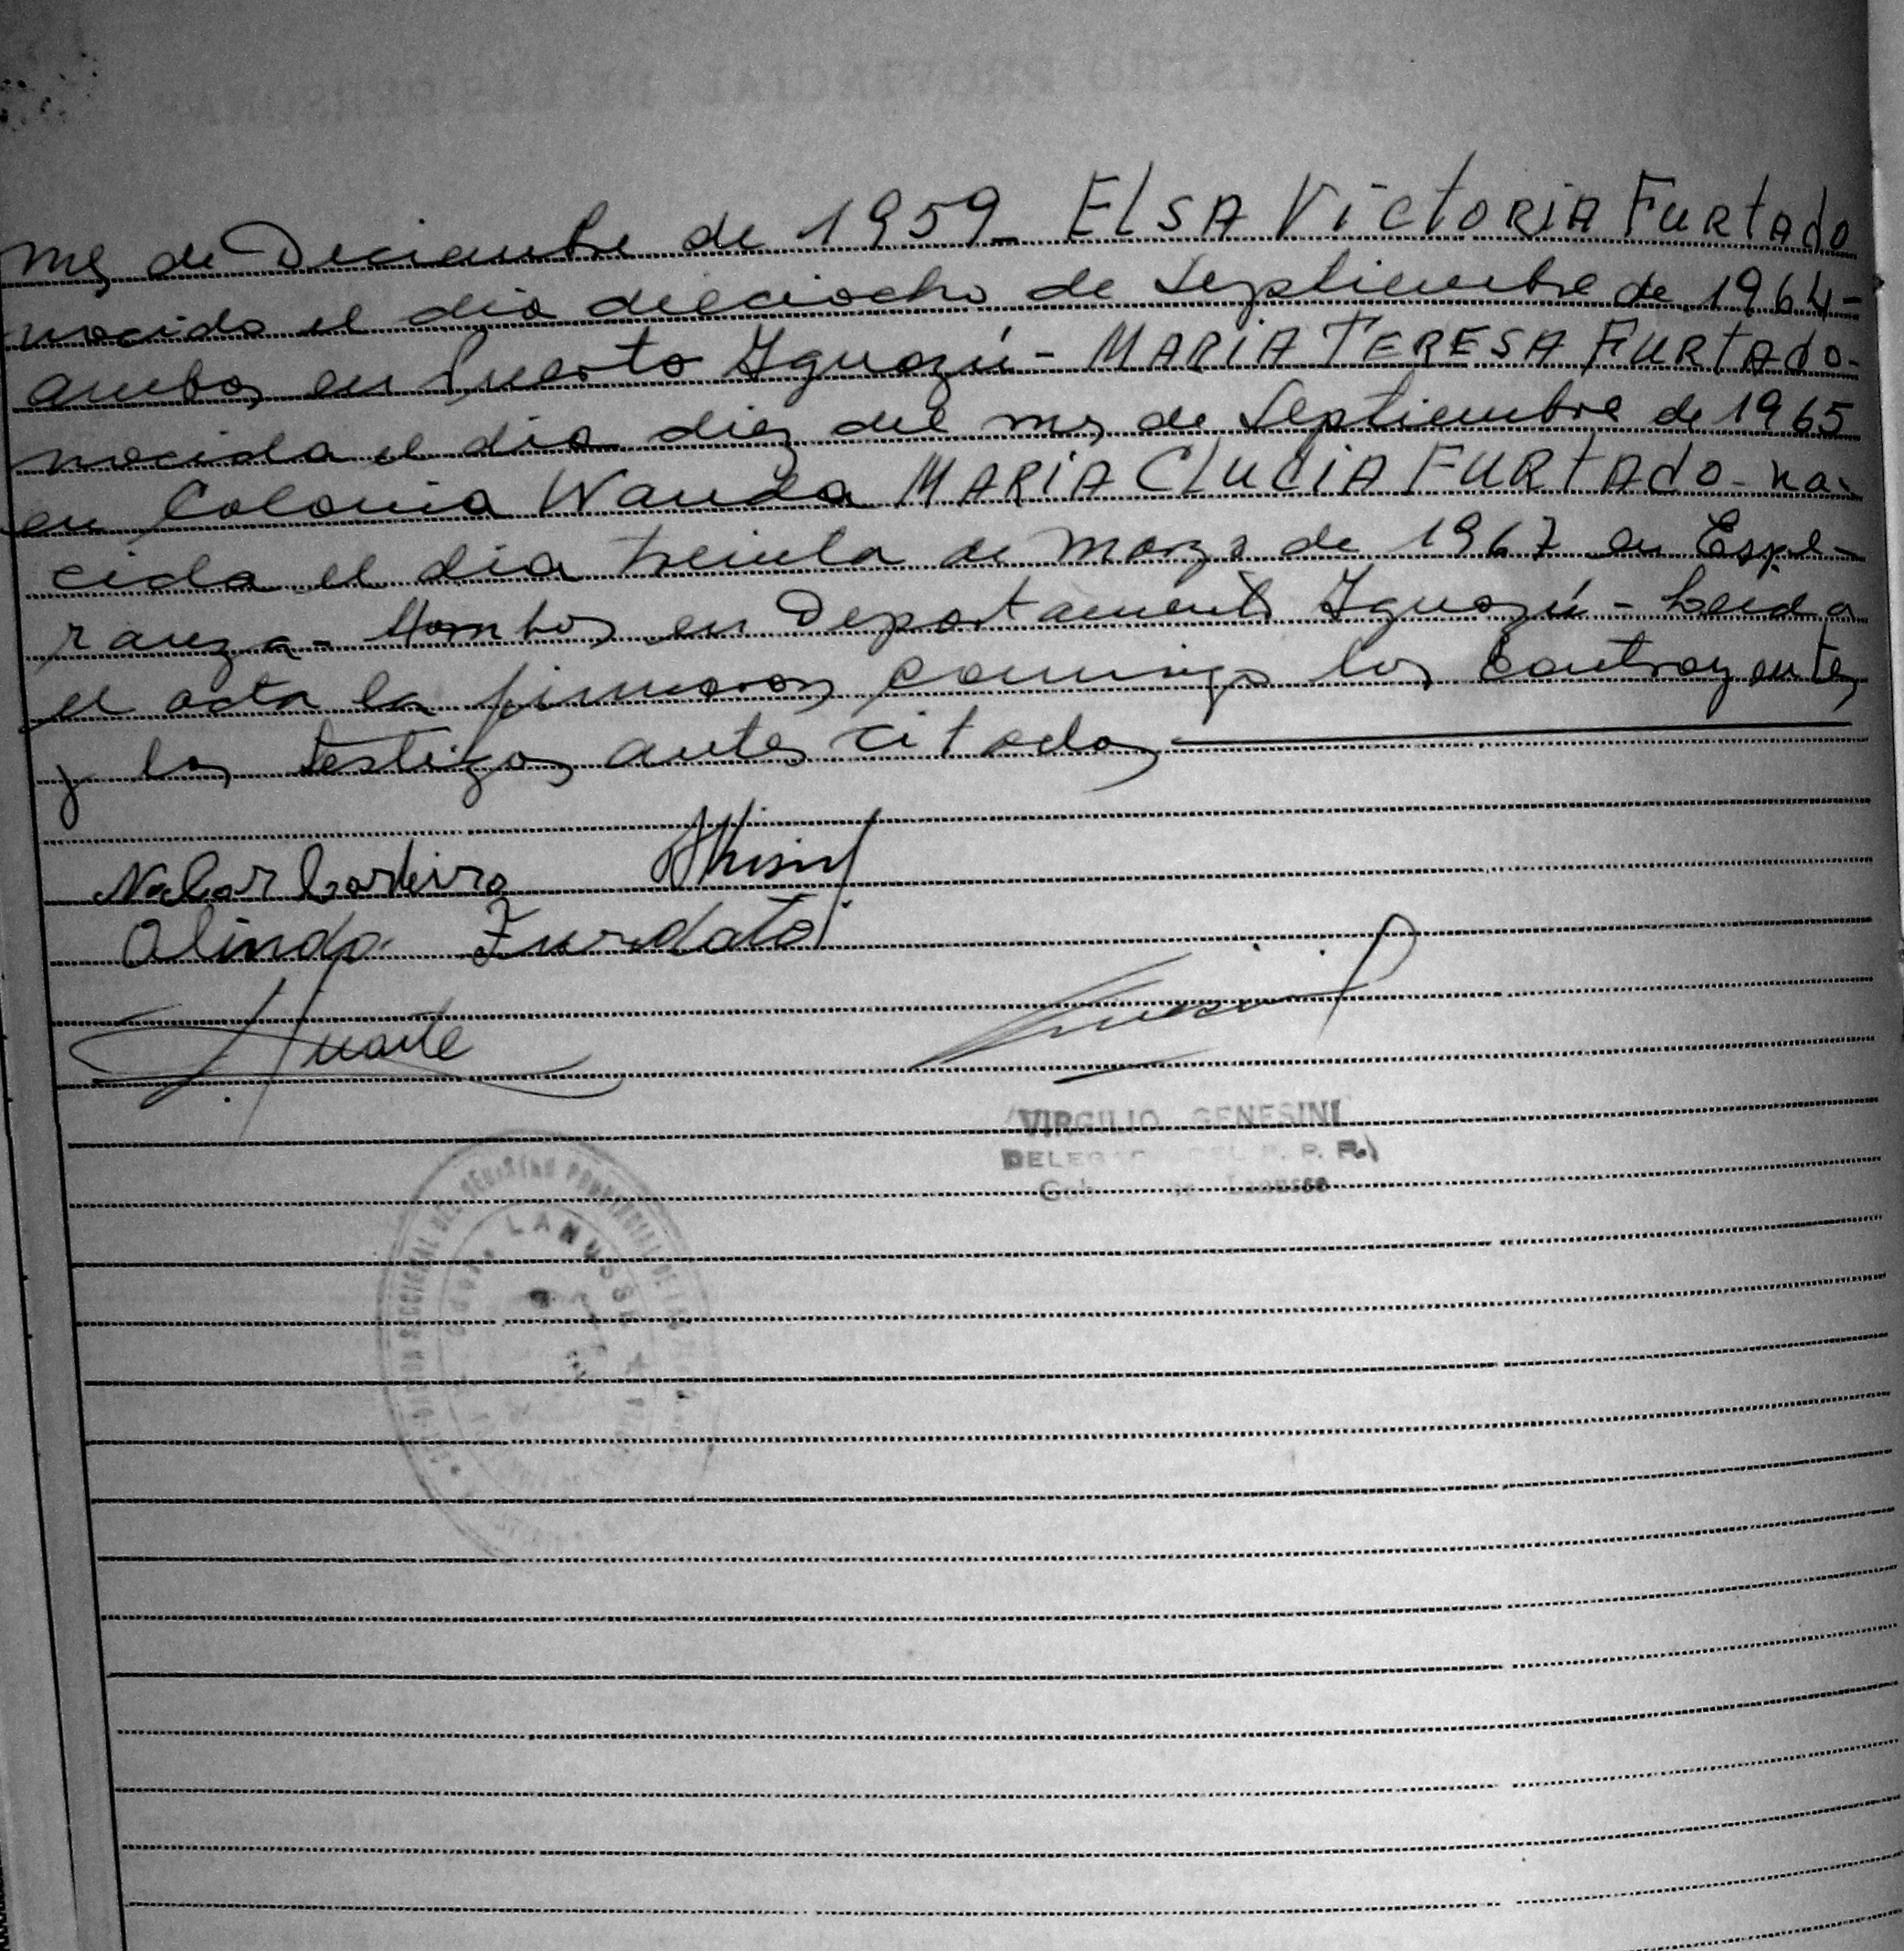 mes de Deciembre de 1959_ ElSA VictoRiA FuRtAdo
nacida el dia dieciocho de Septiembre de 1964-
ambos en Puerto Iguazú - MARiA TERESA FURtAdo-
nacida el dia diez del mes de Septiembre de 1965
en Colonia Wanda MARiA CluciA FURtAdo - na-
cida el dia treinta de Marzo de 1967 en Espe-
ranza - Hombos en Departamento Iguazú - Leida
el acta la firmaron conmigo los Contrayentes
y los testigos antes citados
Olindo Furdato
Duarte
VIRGILIO GENESINI
DEL R. P. P.
Lanusse
LANUSSE